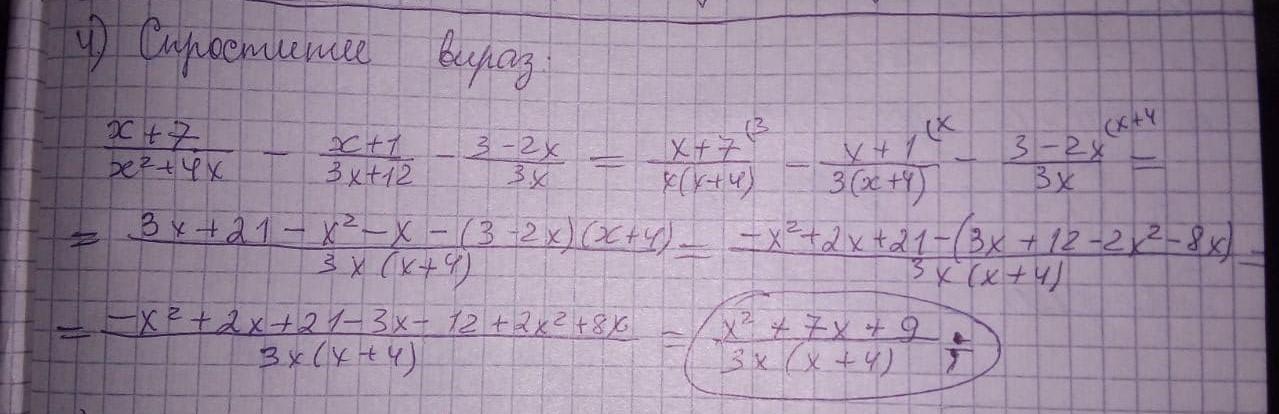 4) Спростите вираз:
(x+7)/(x²+4x) - (x+1)/(3x+12) - (3-2x)/(3x) = (x+7)/(x(x+4)) (3 - (x+1)/(3(x+4)) (x - (3-2x)/(3x) (x+4 =
= (3x+21-x²-x-(3-2x)(x+4))/(3x(x+4)) = (-x²+2x+21-(3x+12-2x²-8x))/(3x(x+4)) =
= (-x²+2x+21-3x-12+2x²+8x)/(3x(x+4)) = (x²+7x+9)/(3x(x+4)) ;